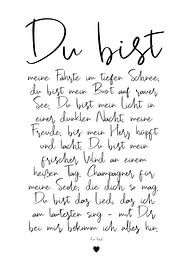 Du bist
meine Fährte im tiefen Schnee,
du bist mein Boot auf rauer
See. Du bist mein Licht in
einer dunklen Nacht, meine
Freude, bis mein Herz hüpft
und lacht. Du bist mein
frischer Wind an einem
heißen Tag, Champagner für
meine Seele, die dich so mag.
Du bist das Lied, das ich
am lautesten sing - mit Dir
bei mir bekomm ich alles hin.